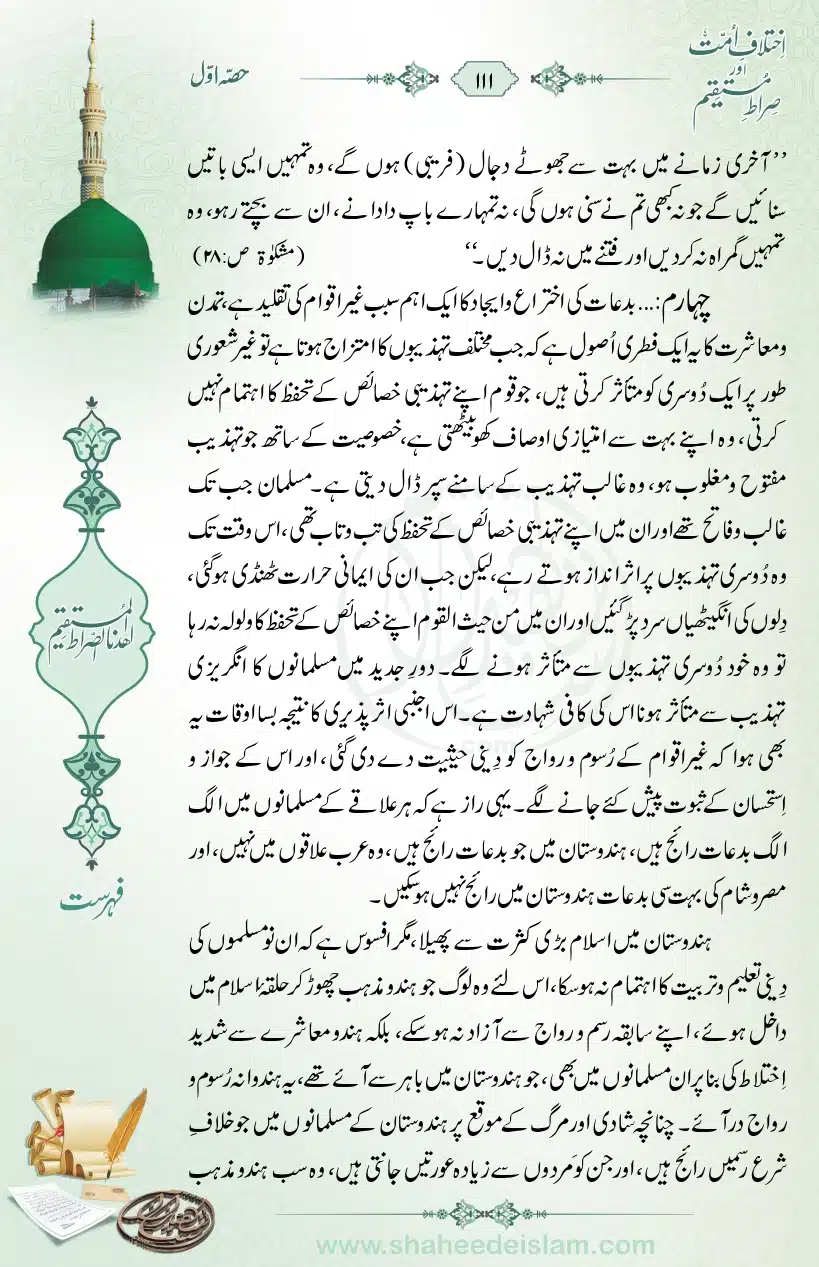 اِختلافِ اُمّت
اور
صِراطِ مُستقیم
۱۱۱
حصہ اوّل
’’آخری زمانے میں بہت سے جھوٹے دجال (فریبی) ہوں گے، وہ تمہیں ایسی باتیں
سنائیں گے جو نہ کبھی تم نے سنی ہوں گی، نہ تمہارے باپ دادا نے، ان سے بچتے رہو، وہ
تمہیں گمراہ نہ کردیں اور فتنے میں نہ ڈال دیں۔‘‘ (مشکوٰۃ ص:۲۸)
چہارم:… بدعات کی اختراع وایجاد کا ایک اہم سبب غیراقوام کی تقلید ہے، تمدن
ومعاشرت کا یہ ایک فطری اُصول ہے کہ جب مختلف تہذیبوں کا امتزاج ہوتا ہے تو غیرشعوری
طور پر ایک دُوسری کو متأثر کرتی ہیں، جو قوم اپنے تہذیبی خصائص کے تحفظ کا اہتمام نہیں
کرتی، وہ اپنے بہت سے امتیازی اوصاف کھو بیٹھتی ہے، خصوصیت کے ساتھ جو تہذیب
مفتوح ومغلوب ہو، وہ غالب تہذیب کے سامنے سپر ڈال دیتی ہے۔ مسلمان جب تک
غالب وفاتح تھے اور ان میں اپنے تہذیبی خصائص کے تحفظ کی تب وتاب تھی، اس وقت تک
وہ دُوسری تہذیبوں پر اثرانداز ہوتے رہے، لیکن جب ان کی ایمانی حرارت ٹھنڈی ہوگئی،
دِلوں کی انگیٹھیاں سرد پڑگئیں اور ان میں من حیث القوم اپنے خصائص کے تحفظ کا ولولہ نہ رہا
تو وہ خود دُوسری تہذیبوں سے متأثر ہونے لگے۔ دورِ جدید میں مسلمانوں کا انگریزی
تہذیب سے متأثر ہونا اس کی کافی شہادت ہے۔ اس اجنبی اثرپذیری کا نتیجہ بسااوقات یہ
بھی ہوا کہ غیراقوام کے رُسوم و رواج کو دِینی حیثیت دے دی گئی، اور اس کے جواز و
اِستحسان کے ثبوت پیش کئے جانے لگے۔ یہی راز ہے کہ ہر علاقے کے مسلمانوں میں الگ
الگ بدعات رائج ہیں، ہندوستان میں جو بدعات رائج ہیں، وہ عرب علاقوں میں نہیں، اور
مصر وشام کی بہت سی بدعات ہندوستان میں رائج نہیں ہوسکیں۔
ہندوستان میں اسلام بڑی کثرت سے پھیلا، مگر افسوس ہے کہ ان نومسلموں کی
دِینی تعلیم وتربیت کا اہتمام نہ ہوسکا، اس لئے وہ لوگ جو ہندو مذہب چھوڑ کر حلقۂ اسلام میں
داخل ہوئے، اپنے سابقہ رسم و رواج سے آزاد نہ ہوسکے، بلکہ ہندو معاشرے سے شدید
اِختلاط کی بنا پر ان مسلمانوں میں بھی، جو ہندوستان میں باہر سے آئے تھے، یہ ہندوانہ رُسوم و
رواج درآئے۔ چنانچہ شادی اور مرگ کے موقع پر ہندوستان کے مسلمانوں میں جو خلافِ
شرع رسمیں رائج ہیں، اور جن کو مَردوں سے زیادہ عورتیں جانتی ہیں، وہ سب ہندو مذہب
اهدنا الصراط المستقیم
فہرست
www.shaheedeislam.com